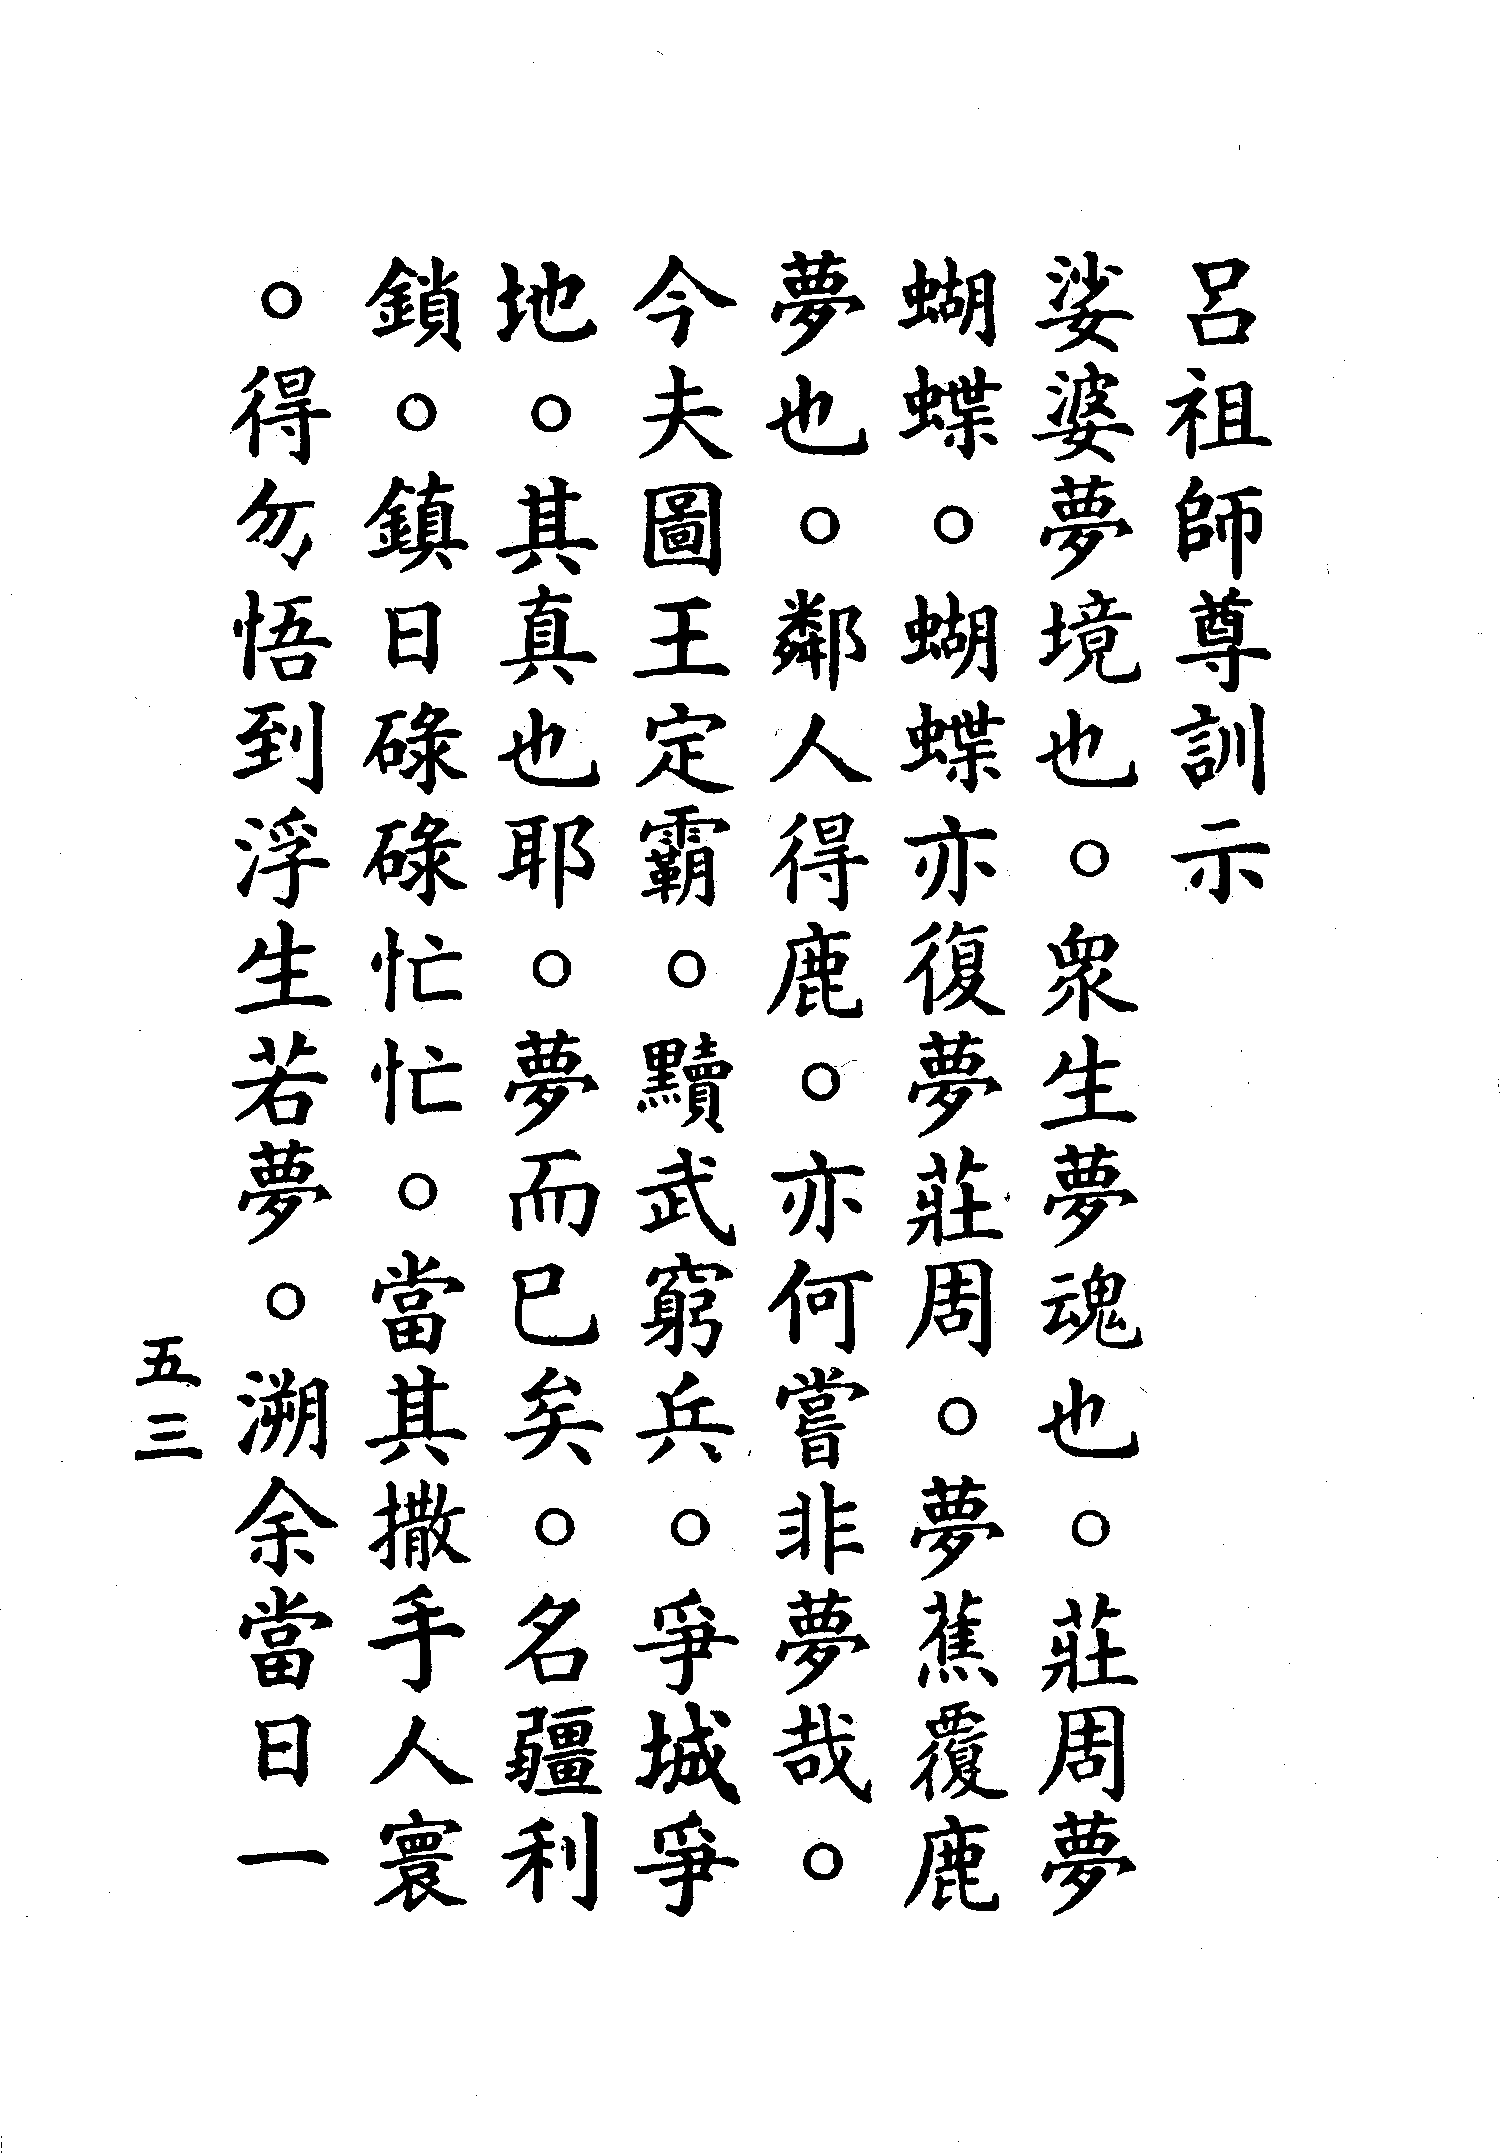 呂祖師尊訓示
娑婆夢境也。眾生夢魂也。莊周夢
蝴蝶。蝴蝶亦復夢莊周。夢蕉覆鹿
夢也。鄰人得鹿。亦何嘗非夢哉。
今夫圖王定霸。黷武窮兵。爭城爭
地。其真也耶。夢而已矣。名疆利
鎖。鎮日碌碌忙忙。當其撒手人寰
。得勿悟到浮生若夢。溯余當日一
五三